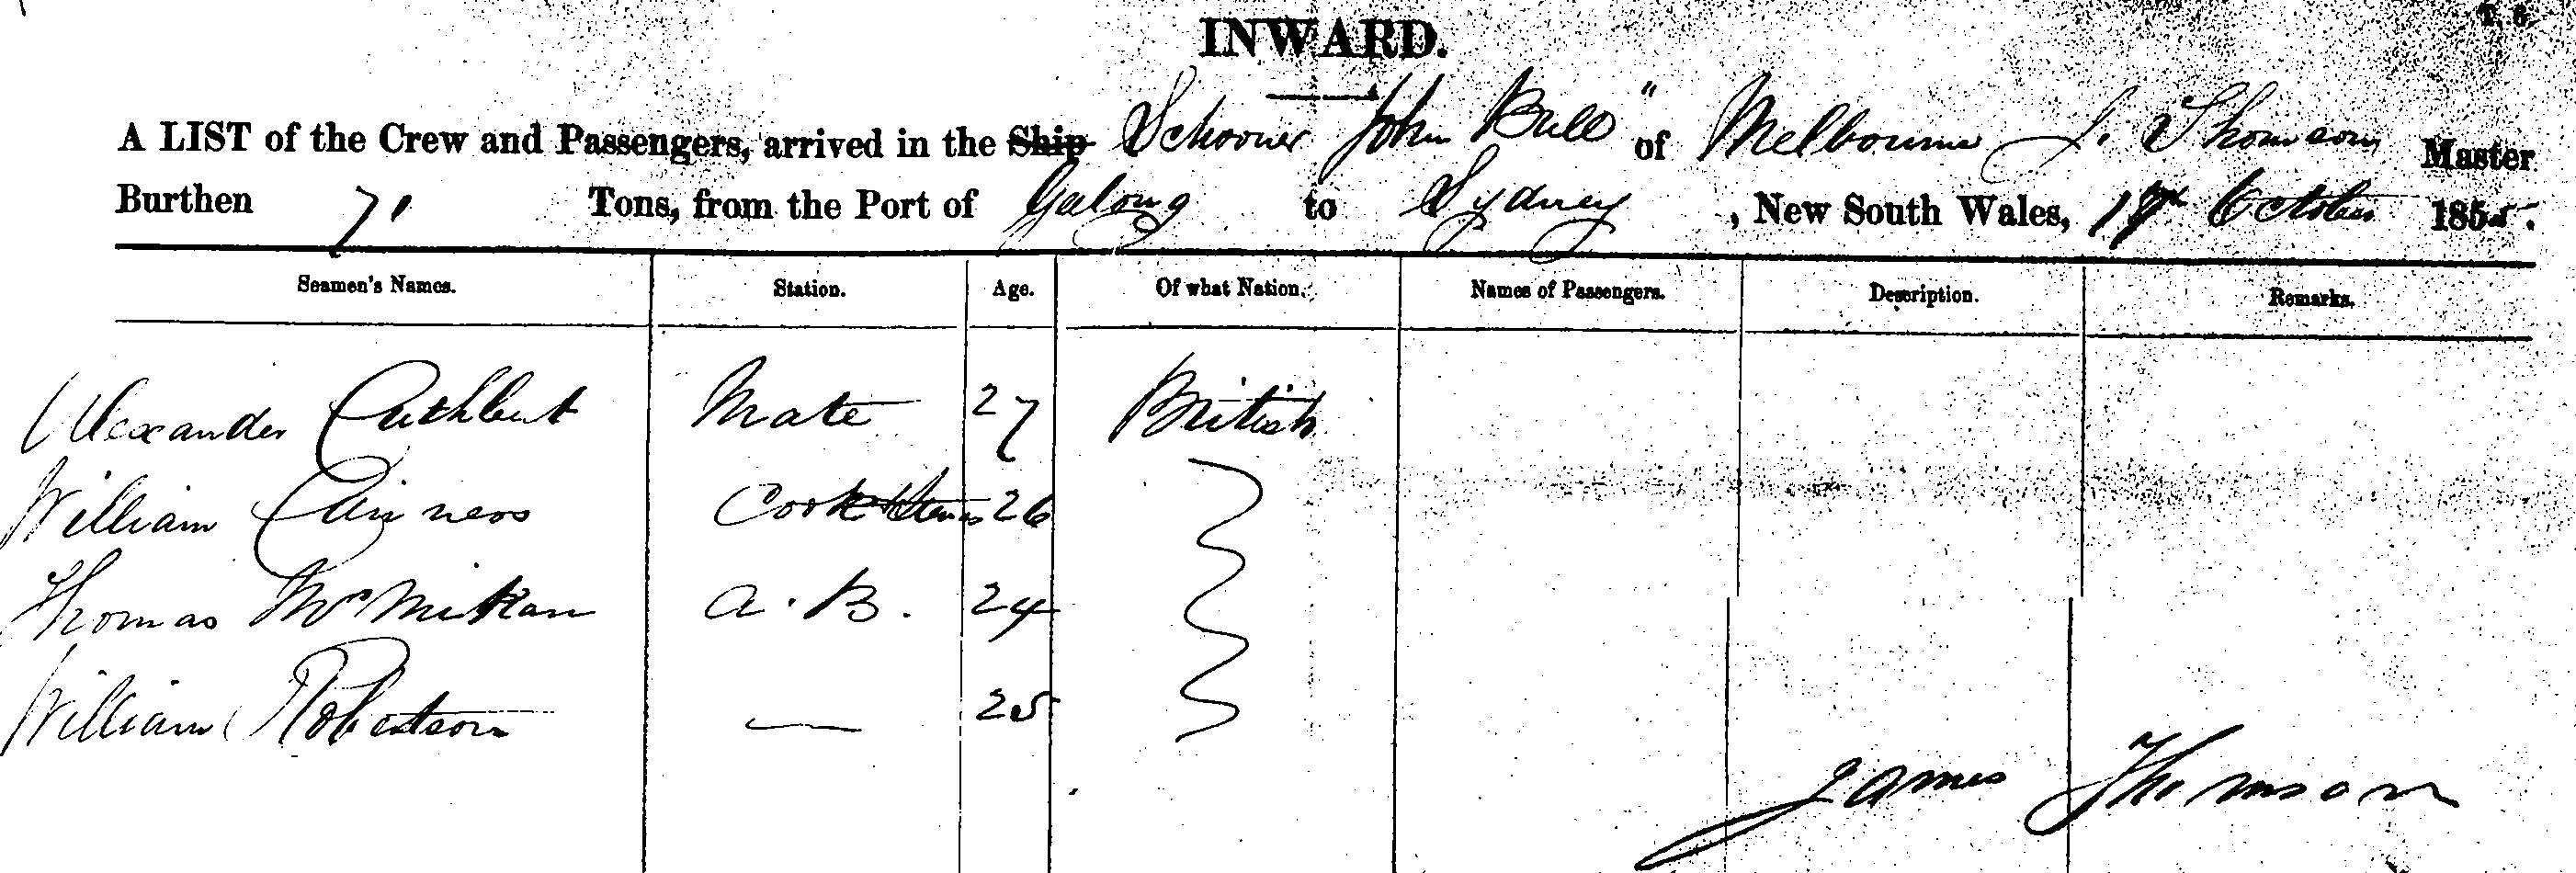 T. 6.
INWARD.
A LIST of the Crew and Passengers, arrived in the Ship Schooner John Bull" of Melbourne J. Thomson Master
Burthen 71 Tons, from the Port of Galong to Sydney, New South Wales, October 1855.
Seamen's Names. Station. Age. Of what Nation. Names of Passengers. Description. Remarks.
Alexander Cuthbert Mate 27 British
William Cook 26
Thomas McMikan A. B. 24
William Robertson — 25
James Thomson